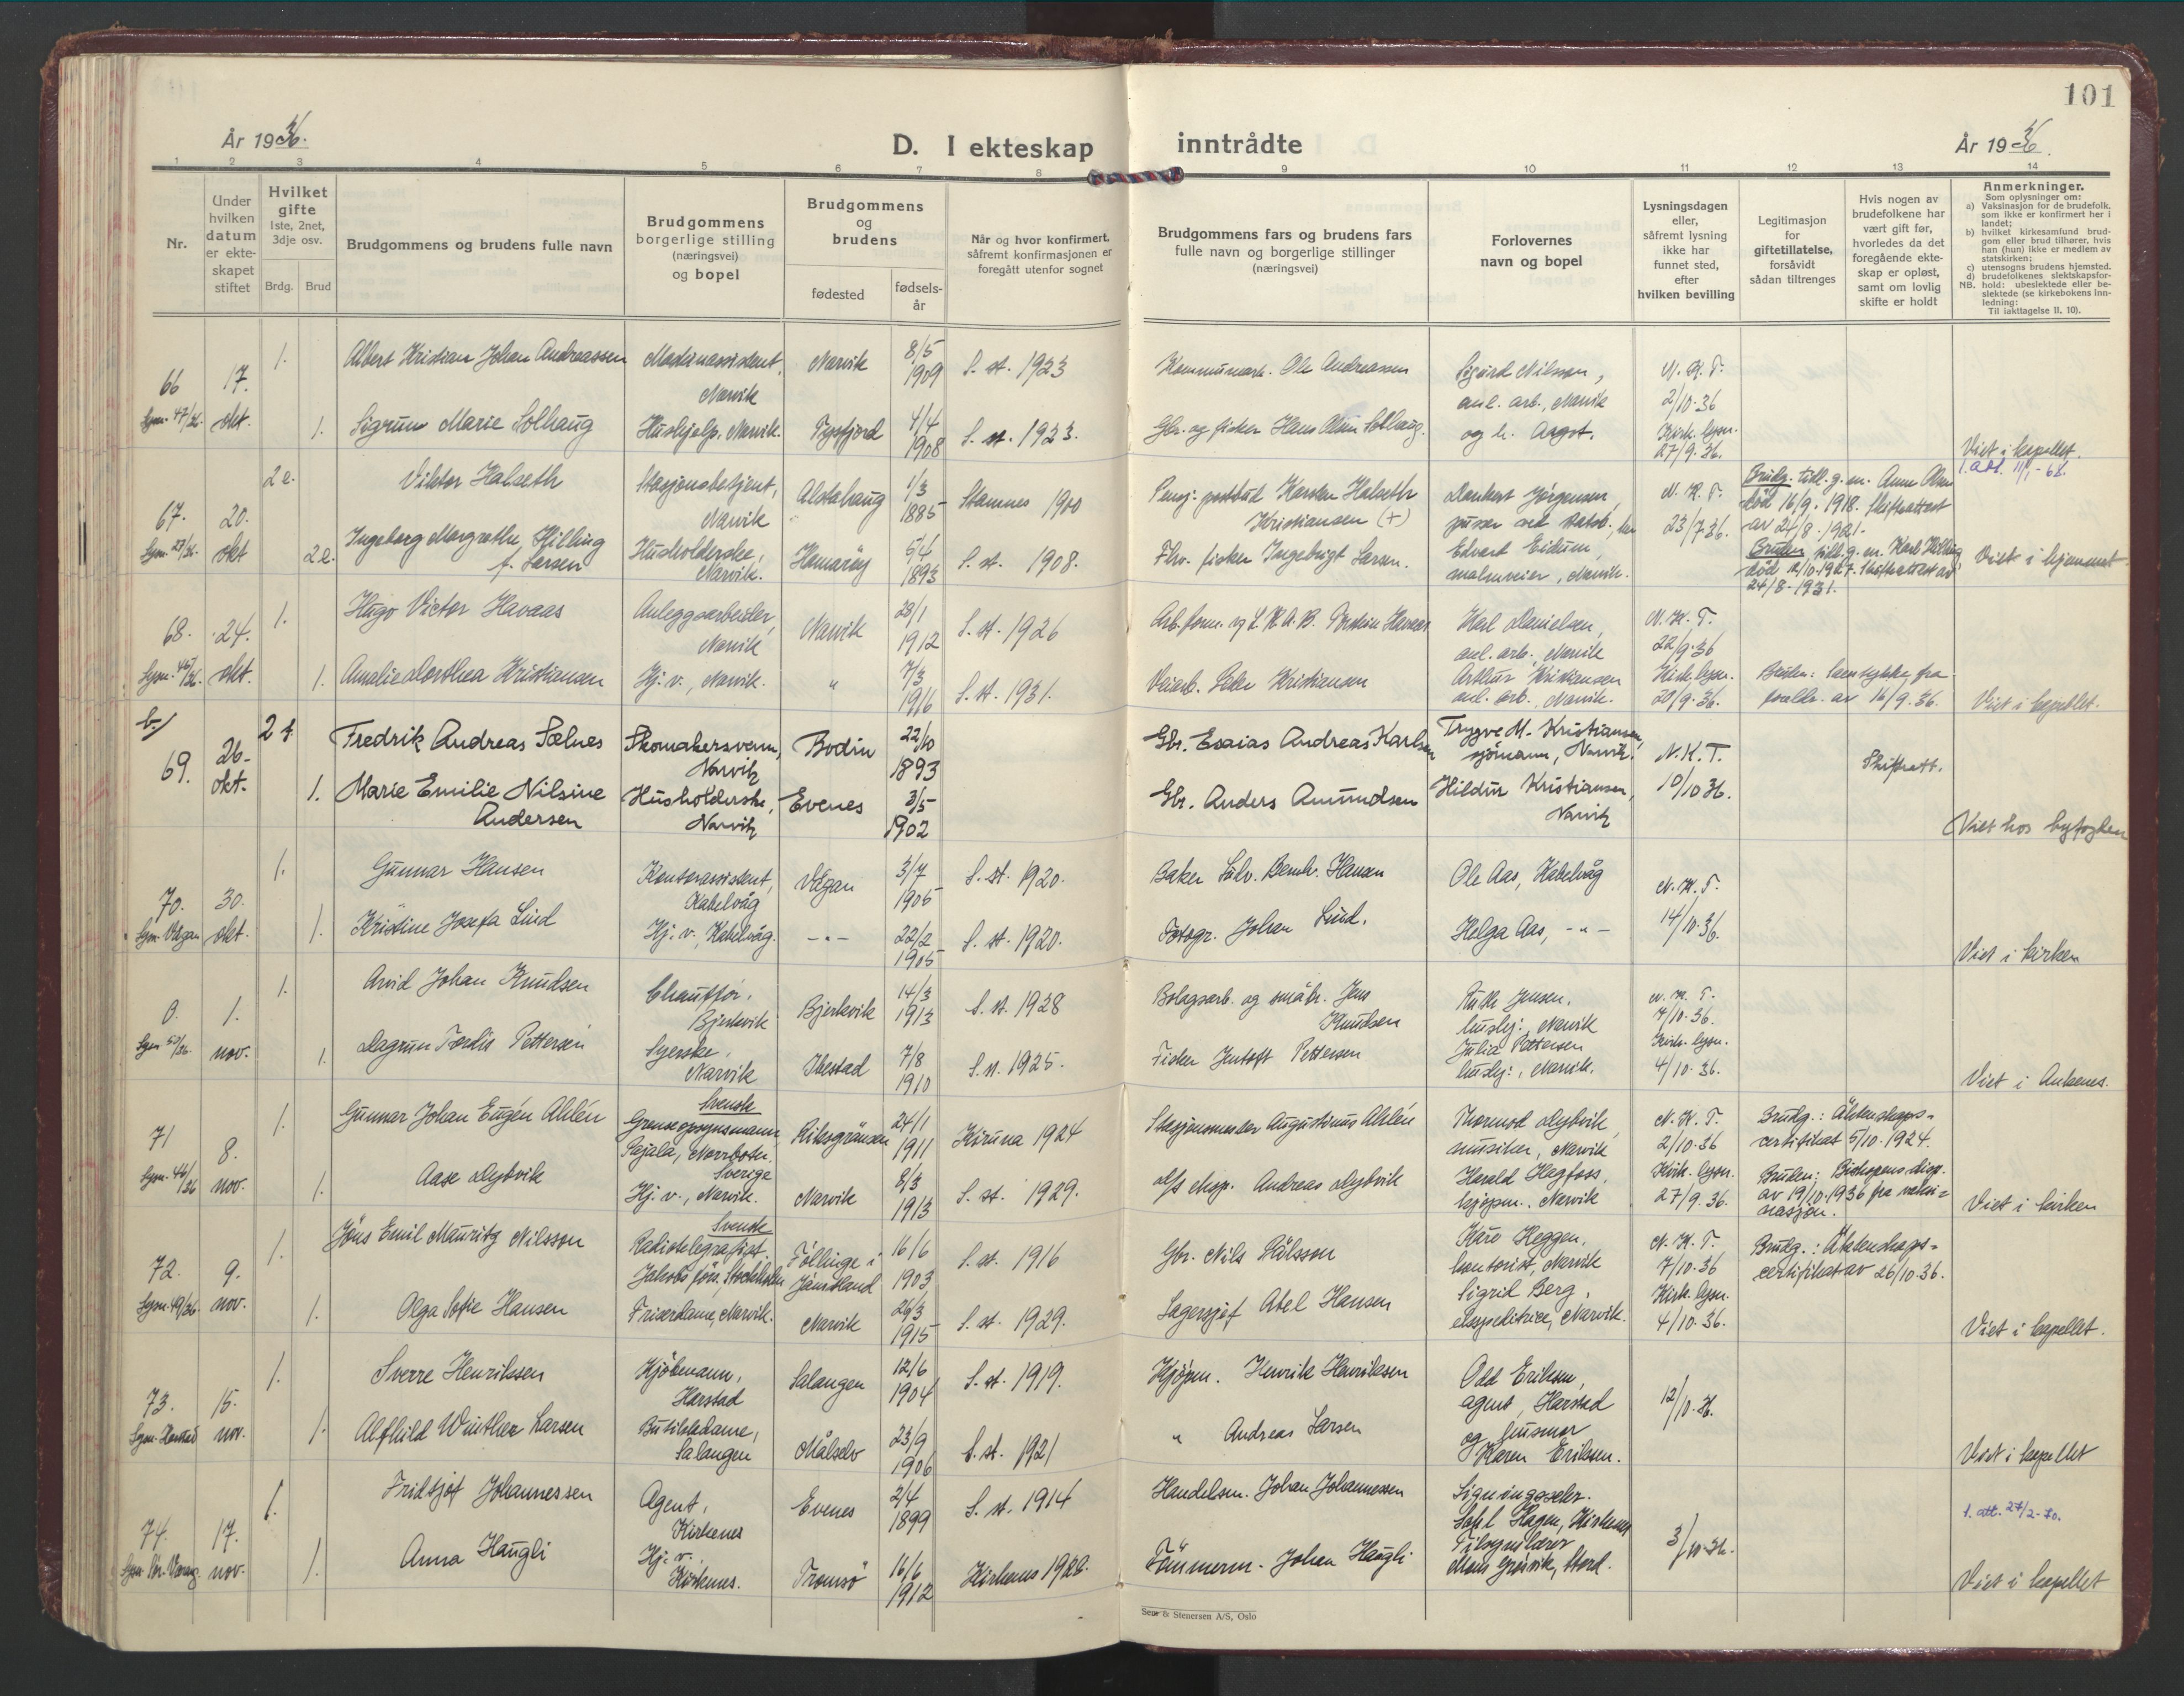 101
År 1936.
D. I ekteskap inntrådte
År 1936.
1 2 3 4 5 6 7 8 9 10 11 12 13 14
Nr.
Under hvilken datum er ekte-skapet stiftet
Hvilket gifte
1ste, 2net, 3dje osv.
Brdg. Brud
Brudgommens og brudens fulle navn
Brudgommens borgerlige stilling (næringsvei) og bopel
Brudgommens og brudens
fødested
fødsels-år
Når og hvor konfirmert, såfremt konfirmasjonen er foregått utenfor sognet
Brudgommens fars og brudens fars fulle navn og borgerlige stillinger (næringsvei)
Forlovernes navn og bopel
Lysningsdagen eller, såfremt lysning ikke har funnet sted, efter hvilken bevilling
Legitimasjon for giftetillatelse, forsåvidt sådan tiltrenges
Hvis nogen av brudefolkene har vært gift før, hvorledes da det foregående ekte-skap er opløst, samt om lovlig skifte er holdt
Anmerkninger.
Som oplysninger om:
a) Vaksinasjon for de brudefolk, som ikke er konfirmert her i landet;
b) hvilket kirkesamfund brud-gom eller brud tilhører, hvis han (hun) ikke er medlem av statskirken;
c) utensogns brudens hjemsted.
d) brudefolkenes slektskapsfor-hold: ubeslektede eller be-slektede (se kirkebokens Inn-ledning:
NB. Til iakttagelse II. 10).
66 Lysn. 47/36. 17. okt.
1. Albert Kristian Johan Andreassen Maskinassistent, Narvik Narvik 8/5 1909 S. st. 1923 Kommunearb. Ole Andreassen Sigurd Nilsen, anl. arb., Narvik N. K. T. 2/10-36
1. Sigrun Marie Solhaug Hushjelp, Narvik. Tysfjord 4/4 1908 S. st. 1923. Gbr. og fisker Hans Olsen Solhaug. og h. Kirk. lysn. 27/9. 36. Viet i kapellet.
67. Lysn. 27/36. 20. okt
2 e. Viktor Halseth Stasjonsbetjent, Narvik Alstahaug 1/3 1885 Stamnes 1900 Pensj. postbud Karsten Halseth Kristiansen (+) Dankert Jørgensen, N. K. T. 23/7 36. Brudg. tidl. g. m. Anna Olsen død 16/9. 1918. Skifteattest av 24/8. 1921.
2 e. Ingeborg Margrethe Hilling f. Larsen Husholderske, Narvik. Hamarøy 5/4 1893 S. st. 1908. Fhv. fisker Ingebrigt Larsen. Edvart Eidum, malmveier, Narvik. Bruden tidl. g. m. Karl Hilling død 12/10-1927. Skifteattest av 24/8-1931. Viet i hjemmet
68. Lysn. 45/36. 24. okt.
1. Hugo Victor Havaas Anleggsarbeider, Narvik Narvik 28/1 1912 S. st. 1926 Karl Danielsen, anl. arb., Narvik N. K. T. 22/9-36
1. Amalie Dorthea Kristiansen Hj. v., Narvik. " 7/3 1916 S. st. 1931. Veiarb. Peder Kristiansen Arthur Kristiansen anl. arb., Narvik. Kirk. lysn. 20/9. 36. Bruden: samtykke fra foreldr. av 16/9. 36. Viet i kapellet.
b.)
69. 26. okt.
2 f. Fredrik Andreas Sælnes Skomakersvenn, Narvik Bodin 22/10 1893 Gbr. Esaias Andreas Karlsen Trygve M. Kristiansen, sjömann, Narvik. N. K. T. 10/10 36. Skifteatt.
1. Marie Emilie Nilsine Andersen Husholderske, Narvik Evenes 3/5 1902 Gbr. Anders Amundsen Hildur Kristiansen, Narvik Viet hos byfogden
70. Lysn. Vågan 30. okt.
1. Gunnar Hansen Kontorassistent, Kabelvåg Vågan 3/7 1905 S. st. 1920. Baker Edv. Bernh. Hansen Ole Aas, Kabelvåg N. K. T. 14/10. 36.
1. Kristine Josefa Lind Hj. v., Kabelvåg. -"- 22/2 1905 S. st. 1920. Fotogr. Johan Lind. Helga Aas, -"- Viet i kirken
0. 1. nov.
1. Arvid Johan Knudsen Chauffør. Bjerkvik Bjerkvik 14/3 1913 S. st. 1928 Bolagsarb. og småbr. Jens Knudsen Ruth Jensen, huslej., Narvik N. K. T. 7/10. 36.
1. Dagrun Tordis Pettersen Syerske, Narvik Ibestad 7/8 1910 S. st. 1925. Fisker Jentoft Pettersen Julia Pettersen huslej., Narvik. Kirk. lysn. 4/10. 36. Viet i Ankenes.
71 Lysn. 46/36 8. nov.
1. Gunnar Johan Eugén Ahlén Svensk Grenseopsynsmann, Pajala, Norrbotten. Sverige Riksgränsen 24/1 1911 Kiruna 1924 Stasjonsmester Augustinus Ahlén Thormod Dybvik, musiker, Narvik N. K. T. 2/10-36 Brudg.: Äktenskaps-certifikat 5/10. 1924.
1. Aase Dybvik Hj. v., Narvik. Narvik 8/3 1913 S. st. 1929. Andreas Dybvik Harald Hegfoss, kjøpm., Narvik Kirk. lysn. 27/9. 36. Bruden: Bishopens disp. av 19/10. 1936 fra vaksi-nasjon. Viet i kirken
72. Lysn. 49/36. 9. nov.
1. Jöns Emil Mauritz Nilsson Svensk Radiotelegrafist. Jakobs förs., Stockholm Föllinge i Jämtland 16/6 1903 S. st. 1916 Gbr. Nils Pålsson Kåre Heggen, kontorist, Narvik N. K. T. 7/10. 36 Brudg.: Äktenskaps-certifikat av 26/10. 36.
1. Olga Sofie Hansen Friserdame, Narvik. Narvik 26/3 1915 S. st. 1929. Lagersjef Abel Hansen Sigrid Berg, ekspeditrice, Narvik. Kirk. lysn. 4/10. 36. Viet i kapellet.
73. Lysn. Harstad 15. nov.
1. Sverre Henrikssen Kjøbmann, Harstad Salangen 12/6 1904 S. st. 1919. Kjøpm. Henrik Henriksen Odd Eriksen, agent, Harstad 12/10. 36.
1. Alfhild Winther Larsen Butikkdame, Salangen Målselv 23/9 1906 S. st. 1921 " Andreas Larsen og husmor Karen Eriksen. Viet i kapellet
74. Lysn. Sør-Varang. 17. nov.
1. Fridtjof Johannessen Agent, Kirkenes Evenes 2/4 1899 S. st. 1914 Handelsm. Johan Johannessen Hagen, Kirkenes 3/10-36. 1. att. 27/2-70.
1. Anna Haugli Hj. v., Kirkenes. Tromsø 16/6 1912 Kirkenes Tömmerm. Johan Haugli Viet i kapellet
Sem & Stenersen A/S, Oslo